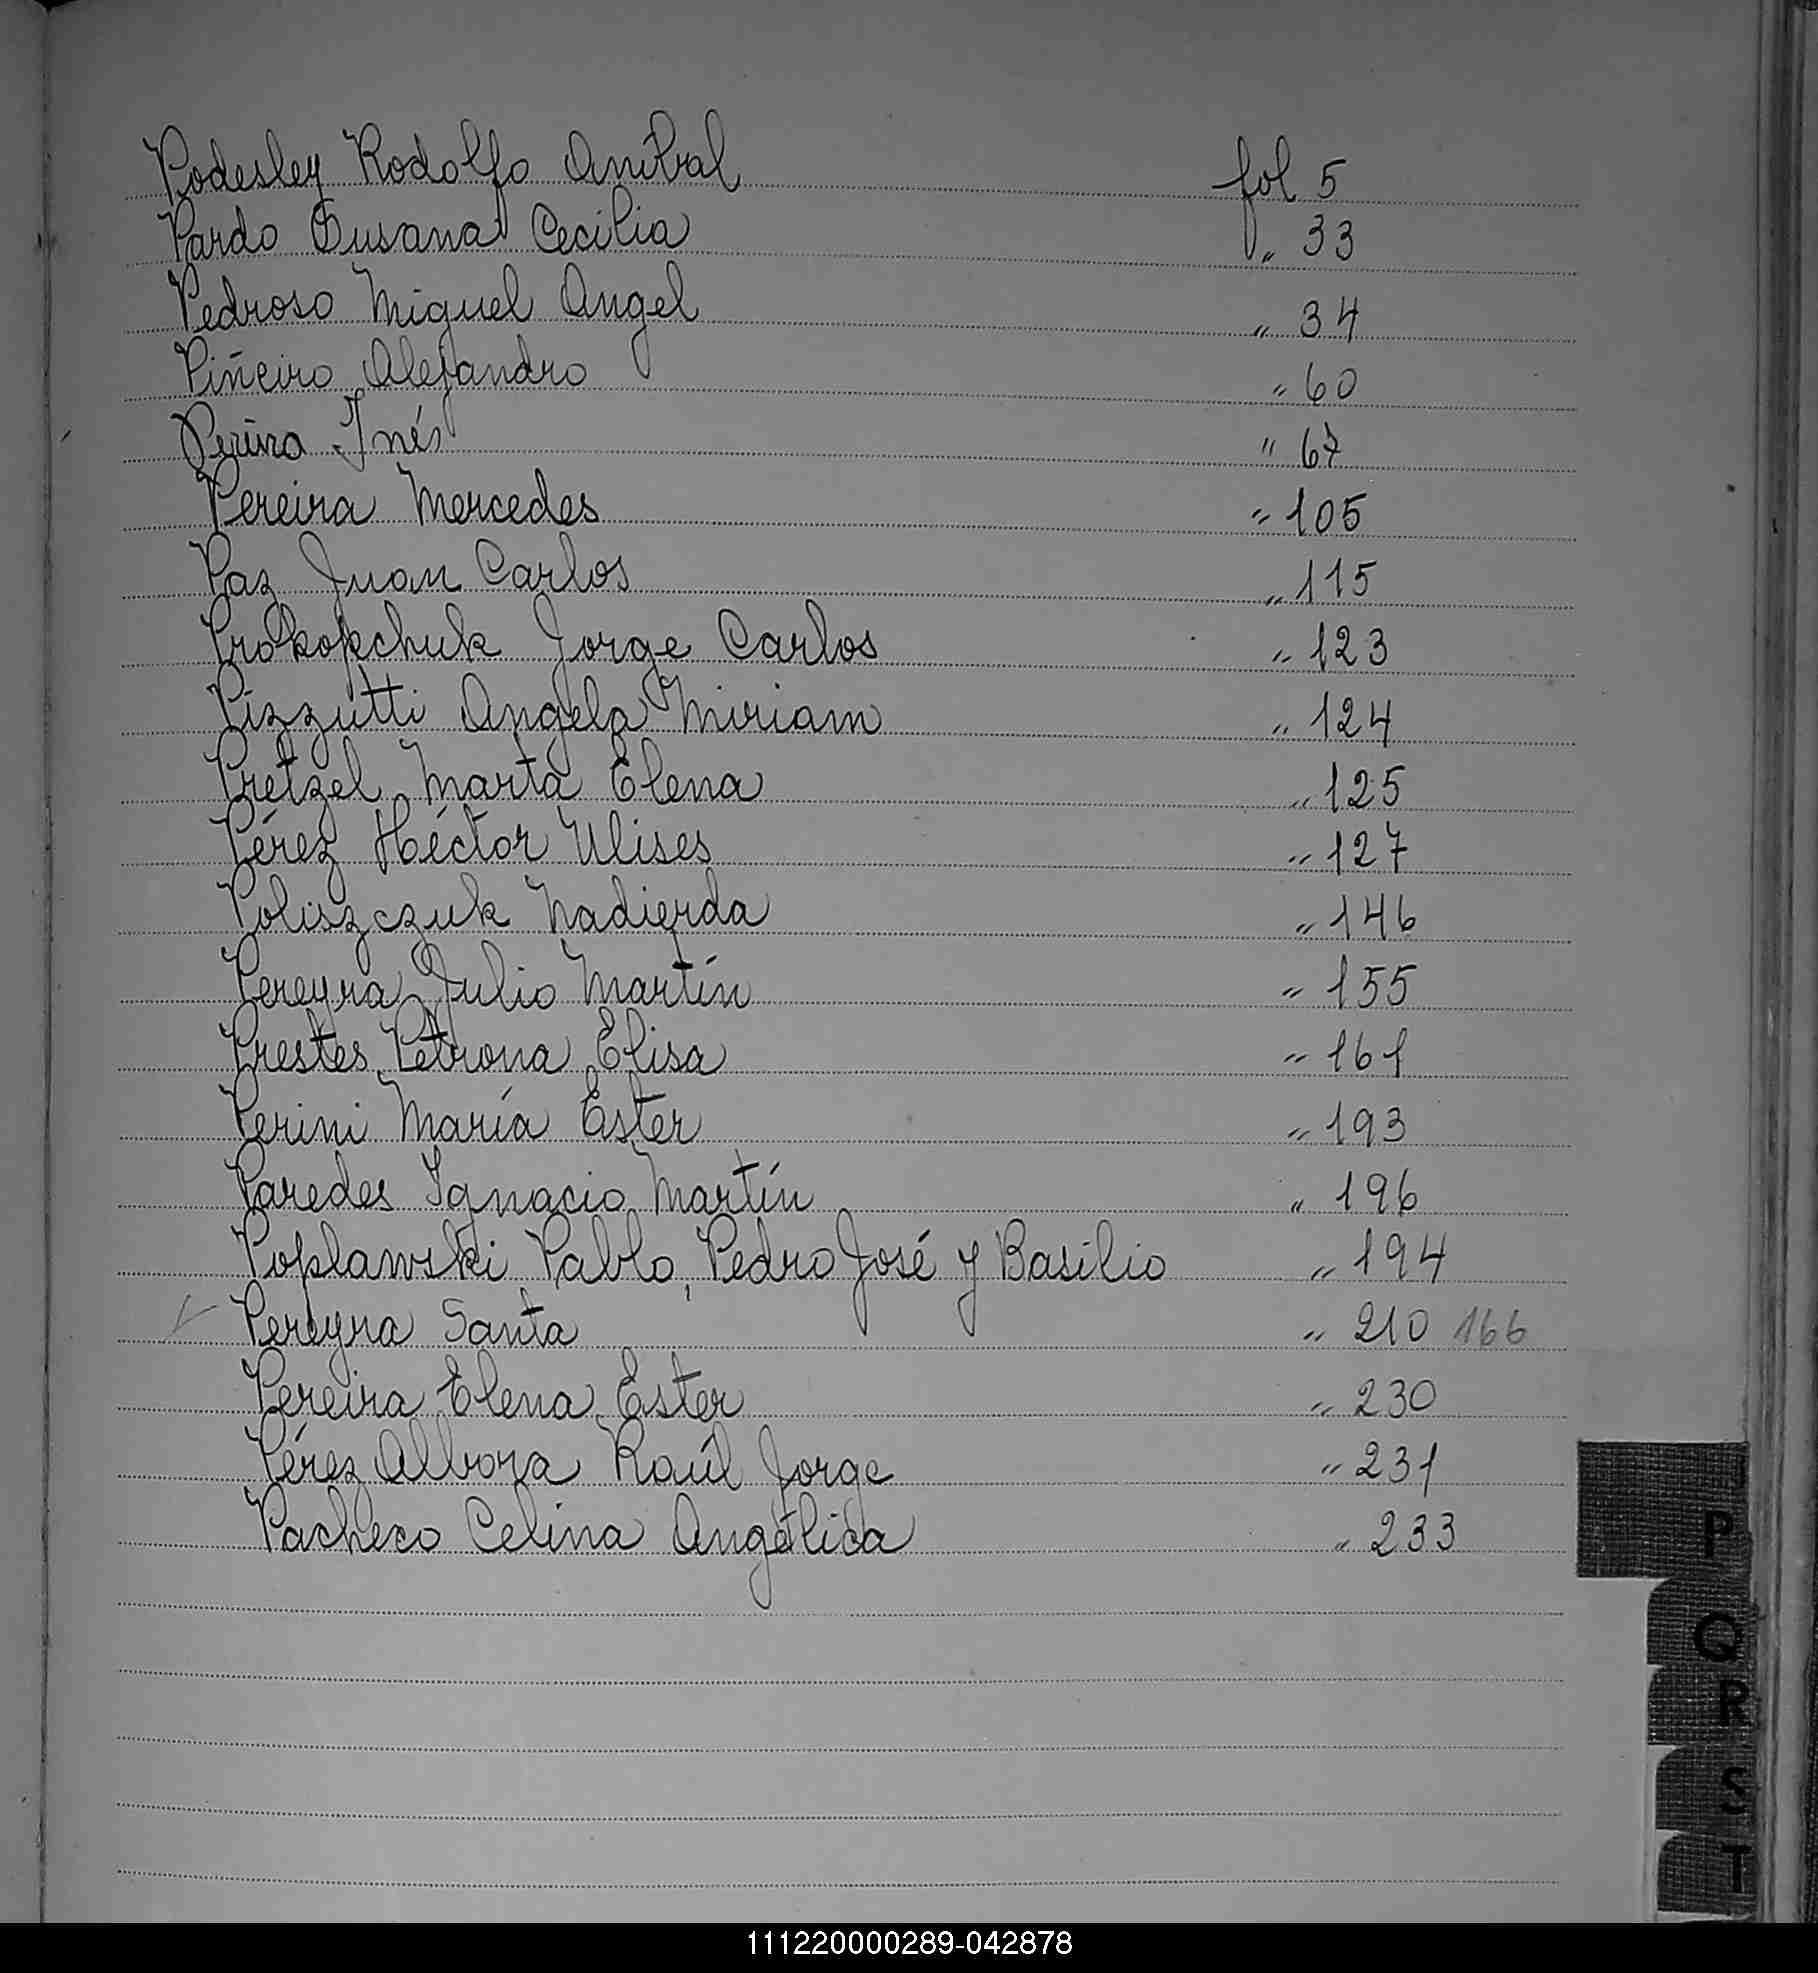 Podesley Rodolfo Aníbal fol 5
Pardo Susana Cecilia " 33
Pedroso Miguel Angel " 34
Piñeiro Alejandro " 60
Inés " 67
Pereira Mercedes " 105
Paz Juan Carlos " 115
Prokopchuk Jorge Carlos " 123
Pizzutti Angela Miriam " 124
Pretzel Marta Elena " 125
Pérez Héctor Ulises " 127
Poliszczuk Nadierda " 146
Pereyra Julio Martín " 155
Prestes Petrona Elisa " 161
Perini María Ester " 193
Paredes Ignacio Martín " 196
Poplawski Pablo, Pedro José y Basilio " 194
Pereyra Santa " 210 166
Pereira Elena Ester " 230
Pérez Albora Raúl Jorge " 231
Pacheco Celina Angélica " 233
P
Q
R
S
T
111220000289-042878